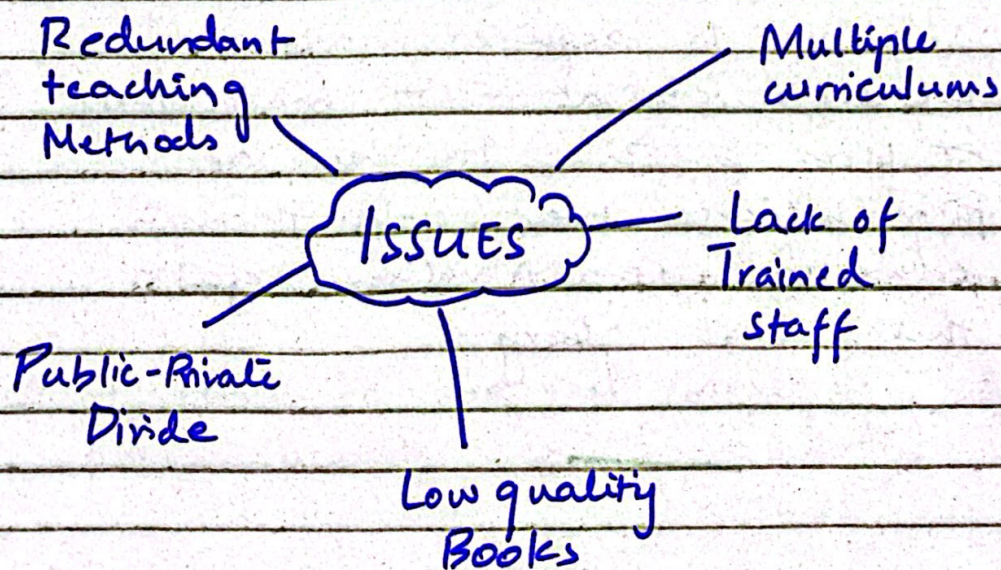 Redundant
teaching
Methods
Multiple
curriculums
ISSUES
Lack of
Trained
staff
Public-Private
Divide
Low quality
Books